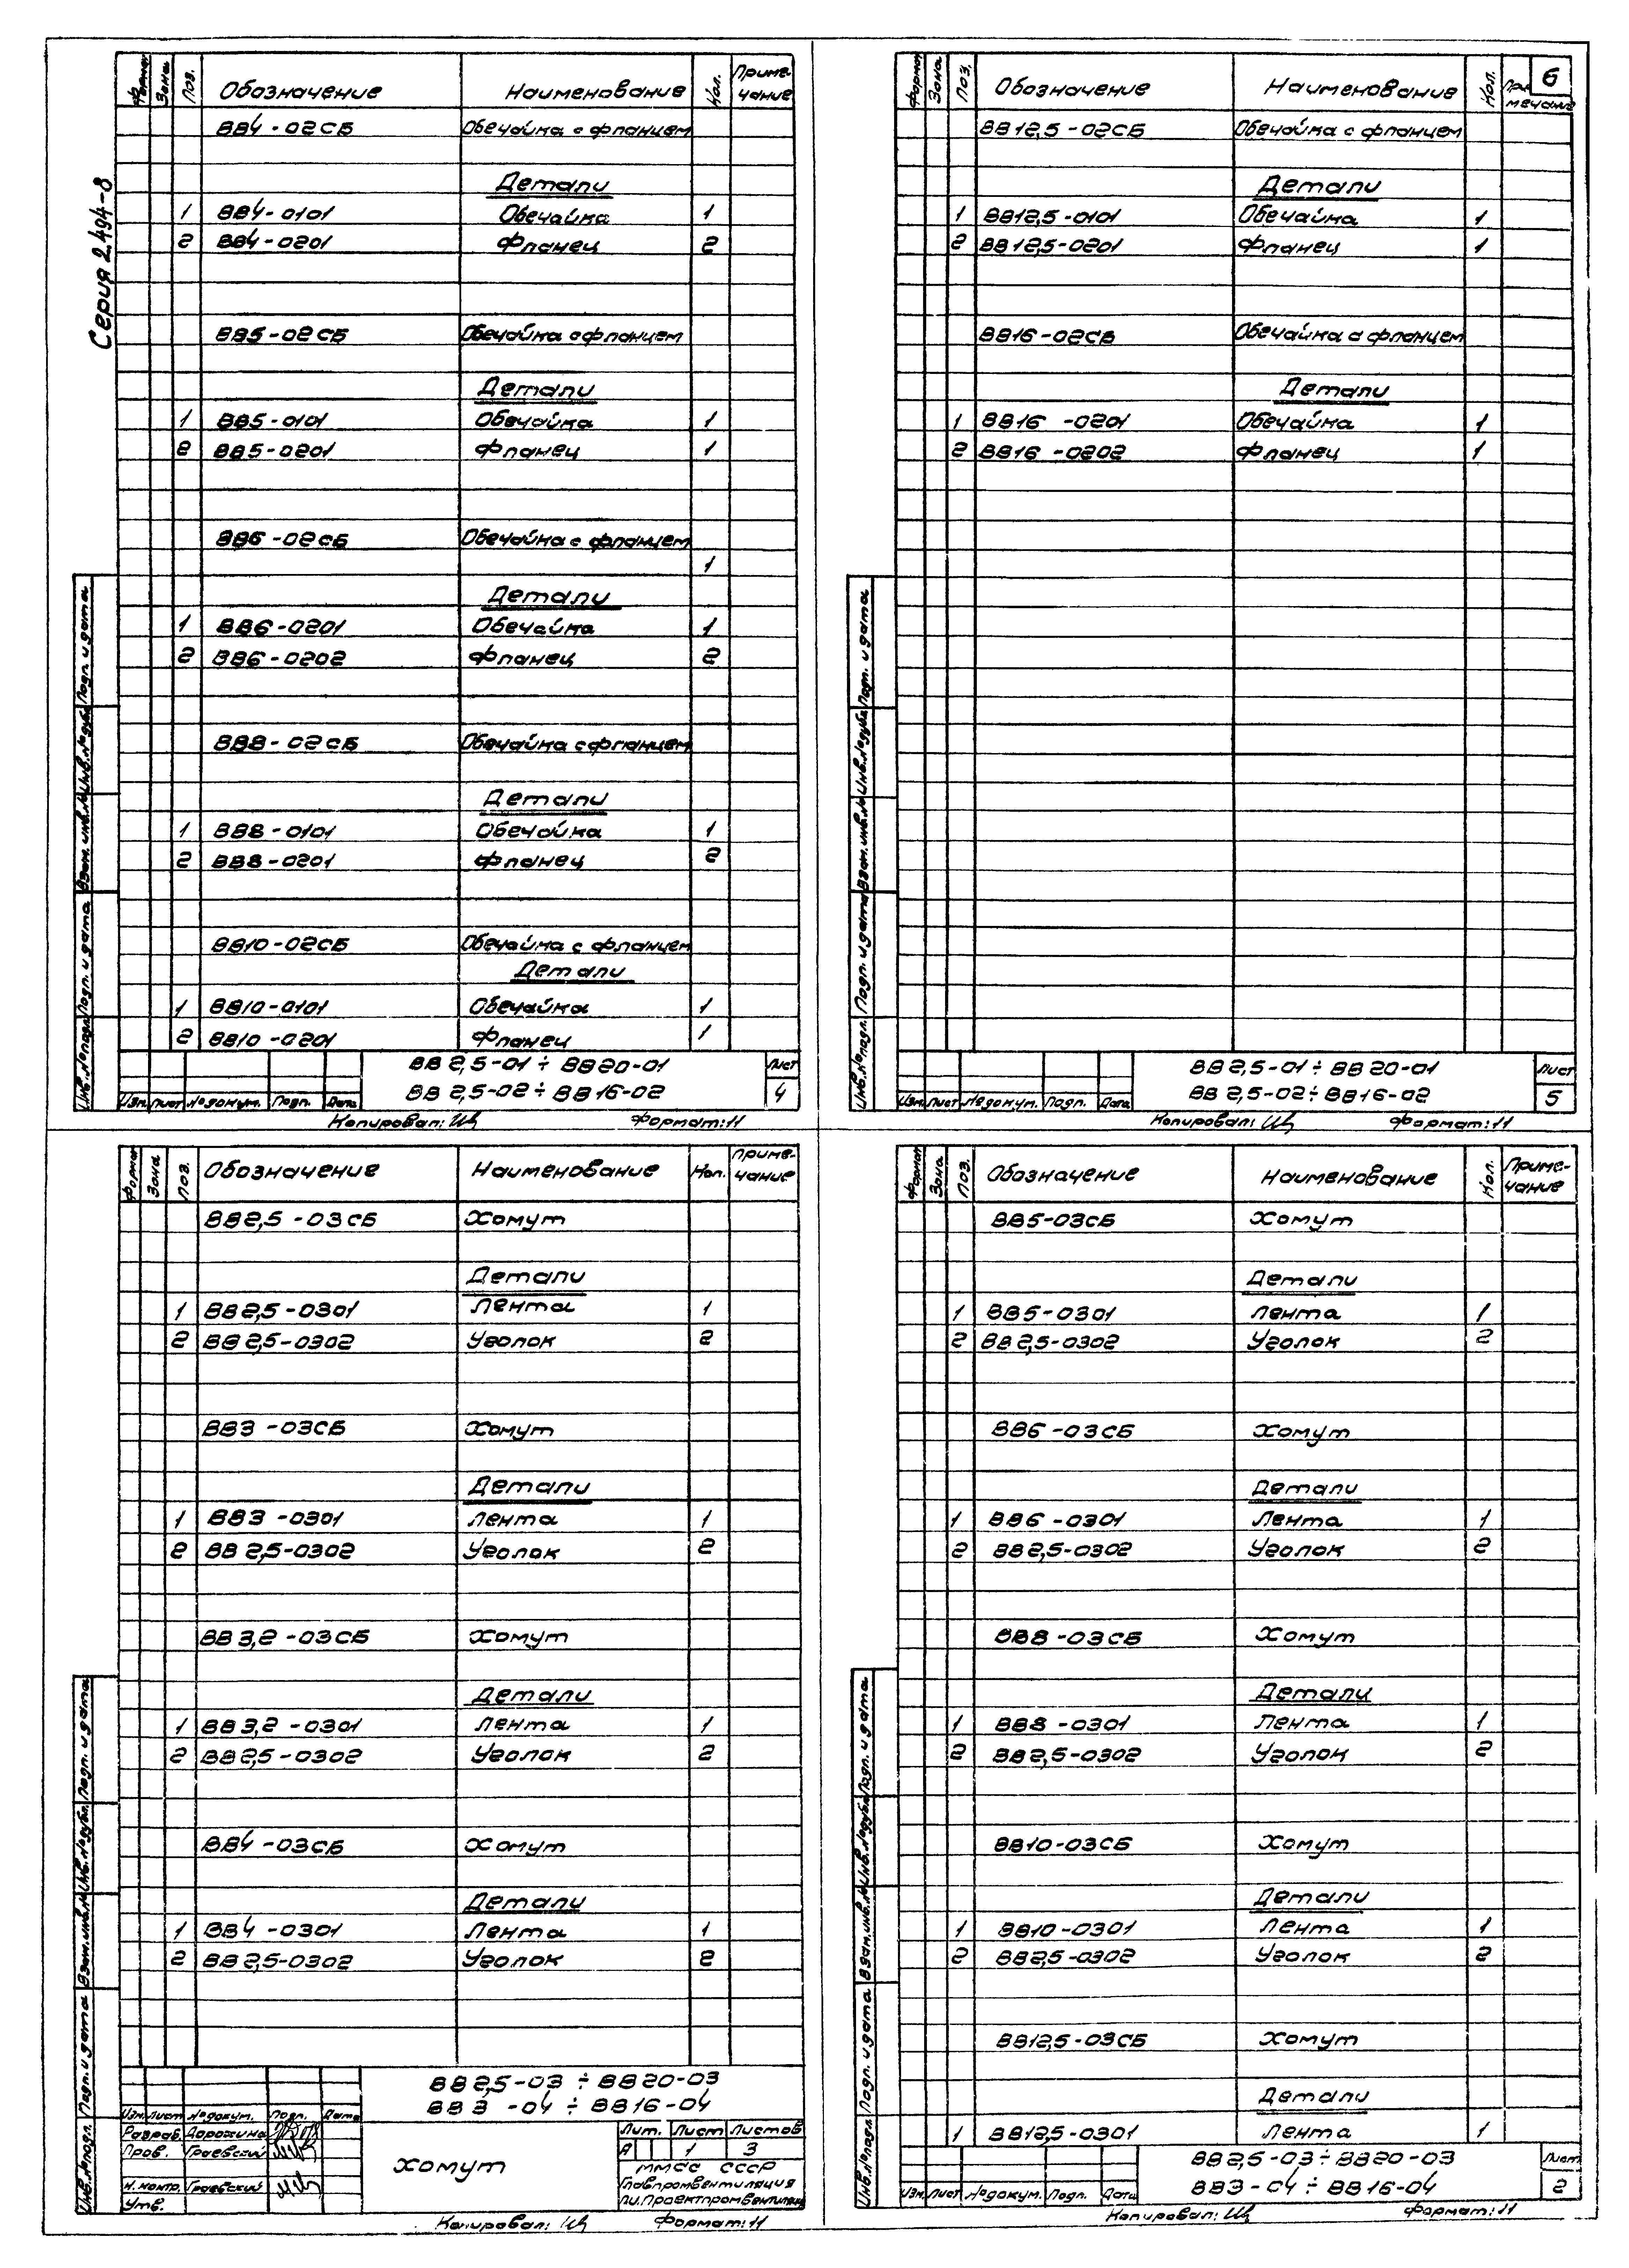 Серия 2.494-8
Формат Зона Поз. Обозначение Наименование Кол. Приме-
чание
ВВ4-02СБ Обечайка с фланцем
Детали
1 ВВ4-0101 Обечайка 1
2 ВВ4-0201 Фланец 2
ВВ5-02СБ Обечайка с фланцем
Детали
1 ВВ5-0101 Обечайка 1
2 ВВ5-0201 Фланец 1
ВВ6-02СБ Обечайка с фланцем
1
Детали
1 ВВ6-0201 Обечайка 1
2 ВВ6-0202 Фланец 2
ВВ8-02СБ Обечайка с фланцем
Детали
1 ВВ8-0101 Обечайка 1
2 ВВ8-0201 Фланец 2
ВВ10-02СБ Обечайка с фланцем
Детали
1 ВВ10-0101 Обечайка 1
2 ВВ10-0201 Фланец 1
ВВ2,5-01÷ВВ20-01 Лист
ВВ2,5-02÷ВВ16-02 4
Изм. Лист №докум. Подп. Дата
Копировал: Формат:11
Инв.№подл. Подп. и дата Взам.инв.№ Инв.№дубл. Подп. и дата
6
Формат Зона Поз. Обозначение Наименование Кол. При
мечание
ВВ12,5-02СБ Обечайка с фланцем
Детали
1 ВВ12,5-0101 Обечайка 1
2 ВВ12,5-0201 Фланец 1
ВВ16-02СБ Обечайка с фланцем
Детали
1 ВВ16-0201 Обечайка 1
2 ВВ16-0202 Фланец 1
ВВ2,5-01÷ВВ20-01 Лист
ВВ2,5-02÷ВВ16-02 5
Изм. Лист №докум. Подп. Дата
Копировал: Формат:11
Инв.№подл. Подп. и дата Взам.инв.№ Инв.№дубл. Подп. и дата
Формат Зона Поз. Обозначение Наименование Кол. Приме-
чание
ВВ2,5-03СБ Хомут
Детали
1 ВВ2,5-0301 Лента 1
2 ВВ2,5-0302 Уголок 2
ВВ3-03СБ Хомут
Детали
1 ВВ3-0301 Лента 1
2 ВВ2,5-0302 Уголок 2
ВВ3,2-03СБ Хомут
Детали
1 ВВ3,2-0301 Лента 1
2 ВВ2,5-0302 Уголок 2
ВВ4-03СБ Хомут
Детали
1 ВВ4-0301 Лента 1
2 ВВ2,5-0302 Уголок 2
ВВ2,5-03÷ВВ20-03
ВВ3-04÷ВВ16-04
Изм. Лист №докум. Подп. Дата
Разраб. Дорохина
Пров. Граевский
Н.контр. Граевский
Утв.
Хомут
Лит. Лист Листов
А 1 3
ММСС СССР
Главпромвентиляция
ПИ.Проектпромвентиляция
Копировал: Формат:11
Инв.№подл. Подп. и дата Взам.инв.№ Инв.№дубл. Подп. и дата
Формат Зона Поз. Обозначение Наименование Кол. Приме-
чание
ВВ5-03СБ Хомут
Детали
1 ВВ5-0301 Лента 1
2 ВВ2,5-0302 Уголок 2
ВВ6-03СБ Хомут
Детали
1 ВВ6-0301 Лента 1
2 ВВ2,5-0302 Уголок 2
ВВ8-03СБ Хомут
Детали
1 ВВ8-0301 Лента 1
2 ВВ2,5-0302 Уголок 2
ВВ10-03СБ Хомут
Детали
1 ВВ10-0301 Лента 1
2 ВВ2,5-0302 Уголок 2
ВВ12,5-03СБ Хомут
Детали
1 ВВ12,5-0301 Лента 1
ВВ2,5-03÷ВВ20-03 Лист
ВВ3-04÷ВВ16-04 2
Изм. Лист №докум. Подп. Дата
Копировал: Формат:11
Инв.№подл. Подп. и дата Взам.инв.№ Инв.№дубл. Подп. и дата